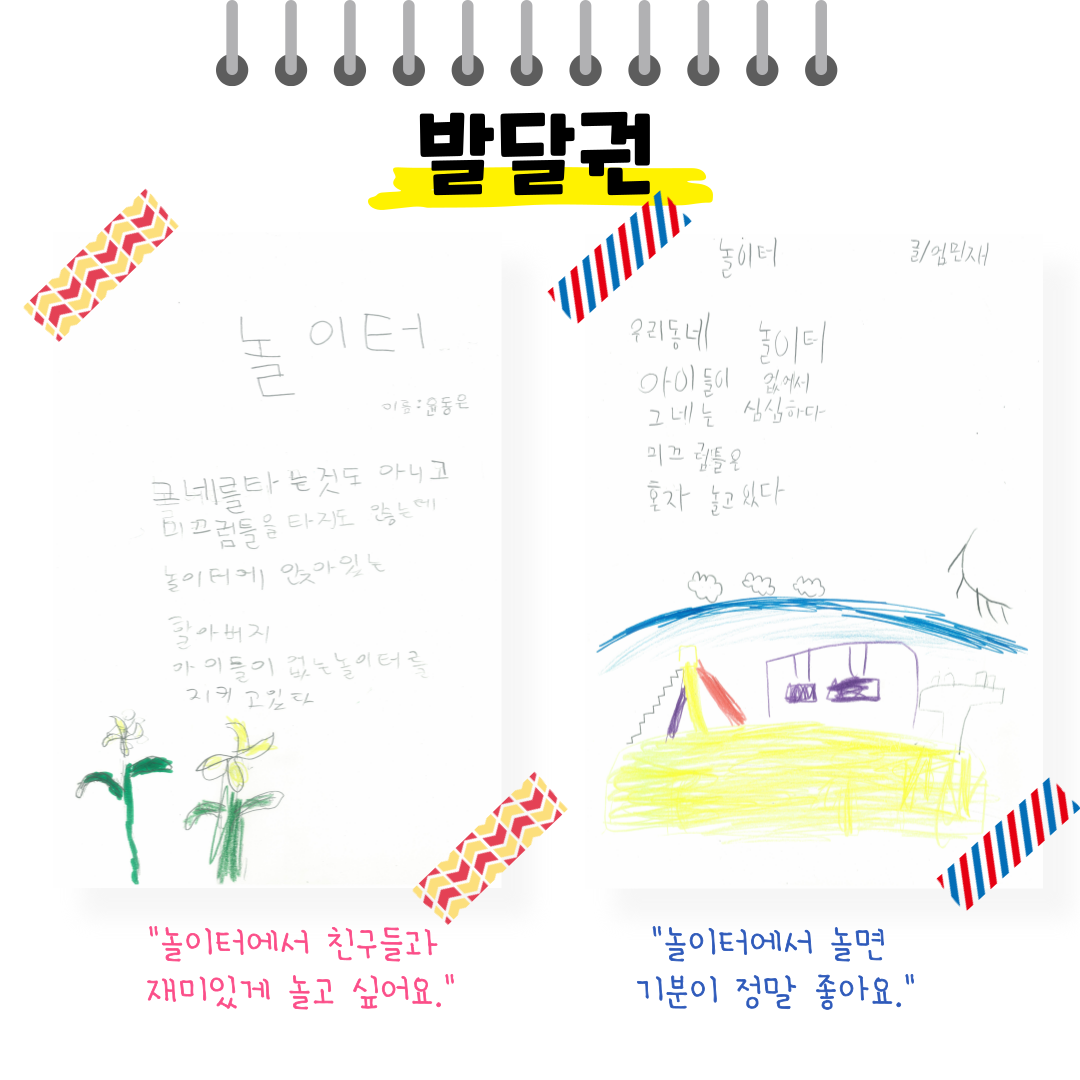 발달권
놀이터
이름:윤동은
그네를타는것도 아니고
미끄럼틀을 타지도 않는데
놀이터에 앉아있는
할아버지
아이들이 없는놀이터를
지키고있다
"놀이터에서 친구들과
재미있게 놀고 싶어요."
놀이터
글/엄민재
우리동네 놀이터
아이들이 없어서
그네는 심심하다
미끄럼틀은
혼자 놀고있다
"놀이터에서 놀면
기분이 정말 좋아요."